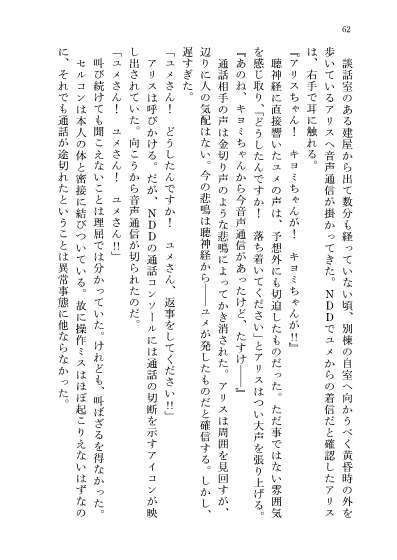 62
　談話室のある建屋から出て数分も経っていない頃、別棟の自室へ向かうべく黄昏時の外を
歩いているアリスへ音声通信が掛かってきた。ＮＤＤでユメからの着信だと確認したアリス
は、右手で耳に触れる。
『アリスちゃん！　キヨミちゃんが！　キヨミちゃんが!!』
　聴神経に直接響いたユメの声は、予想外にも切迫したものだった。ただ事ではない雰囲気
を感じ取り、「どうしたんですか！　落ち着いてください」とアリスはつい大声を張り上げる。
『あのね、キヨミちゃんから今音声通信があったけど、たすけ――』
　通話相手の声は金切り声のような悲鳴によってかき消された。アリスは周囲を見回すが、
辺りに人の気配はない。今の悲鳴は聴神経から――ユメが発したものだと確信する。しかし、
遅すぎた。
「ユメさん！　どうしたんですか！　ユメさん、返事をしてください!!」
　アリスは呼びかける。だが、ＮＤＤの通話コンソールには通話の切断を示すアイコンが映
し出されていた。向こうから音声通信が切られたのだ。
「ユメさん！　ユメさん！　ユメさん!!」
　叫び続けても聞こえないことは理屈では分かっていた。けれども、叫ばざるを得なかった。
　セルコンは本人の体と密接に結びついている。故に操作ミスはほぼ起こりえないはずなの
に、それでも通話が途切れたということは異常事態に他ならなかった。